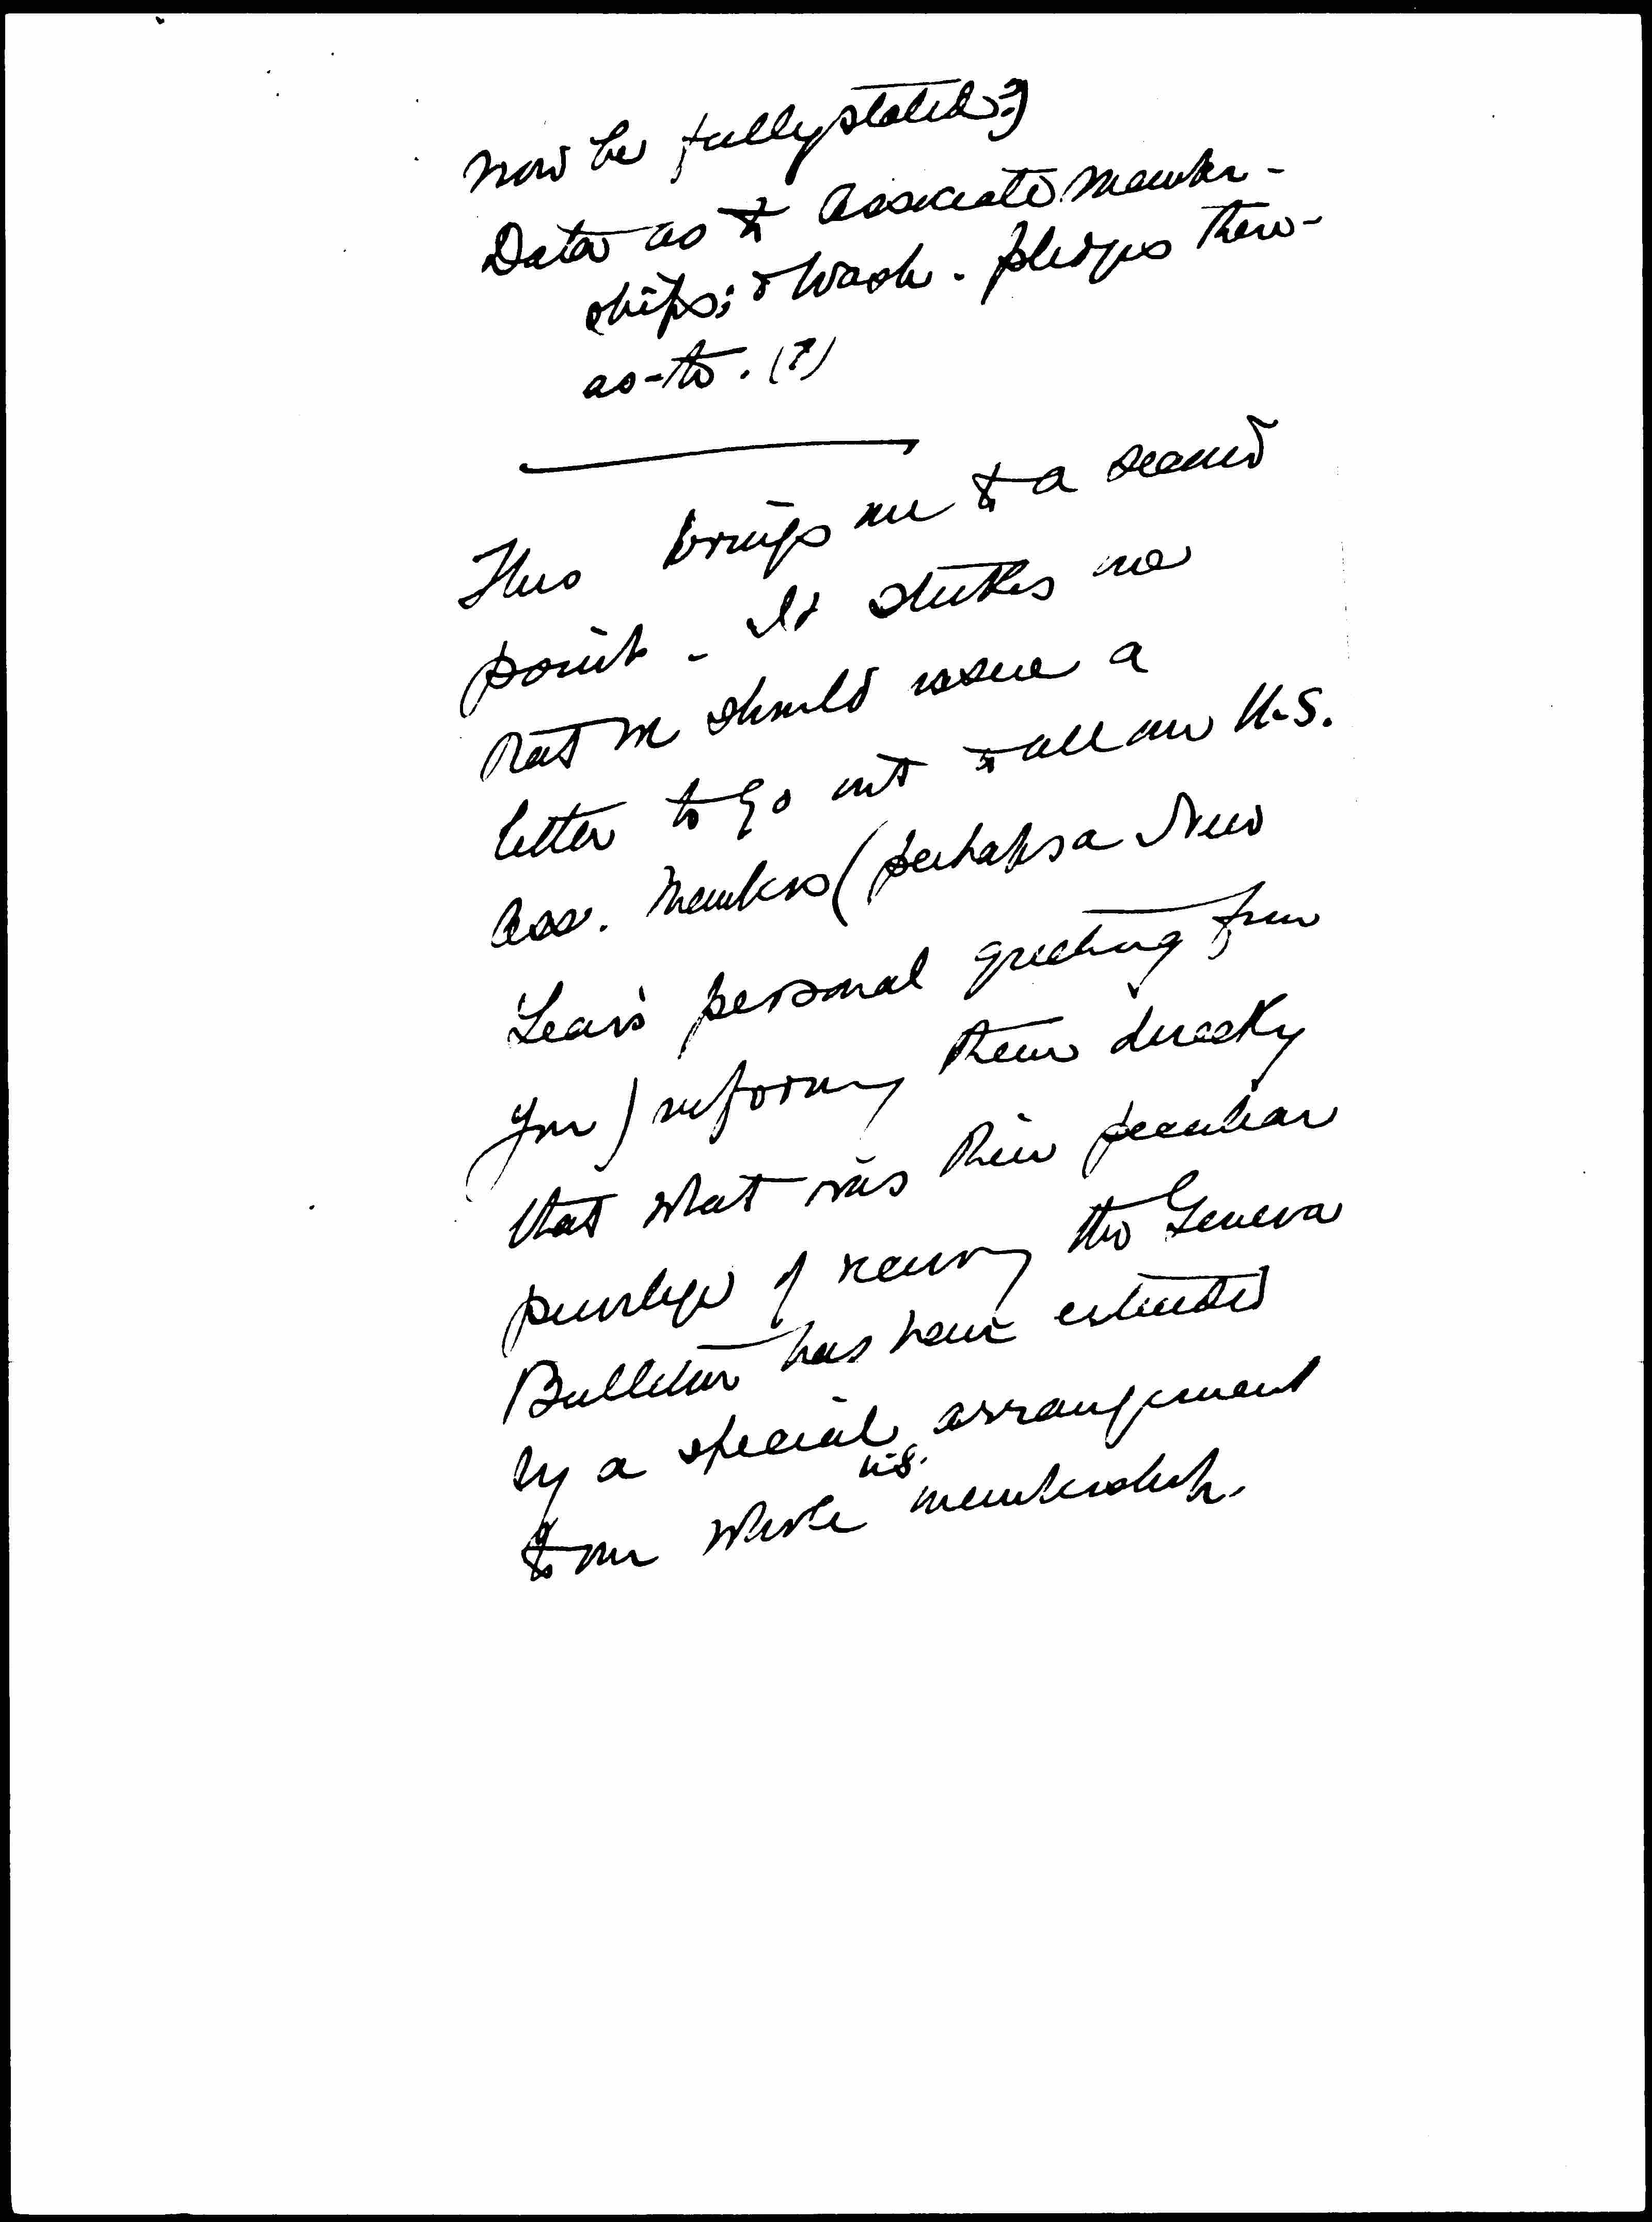 now be fully stated?)
Data as to Associate Member-
ships; & Wash. pledges there-
as-to. (?)
This brings me to a second
point - It strikes me
that we should issue a
letter to go out to all our U.S.
Ass. Members (perhaps a New
Year's personal greeting from
you) informing them directly
that what was their peculiar
privilege of receiving the Geneva
Bulletin has been extended
by a special arrangement
to our whole U.S. membership.